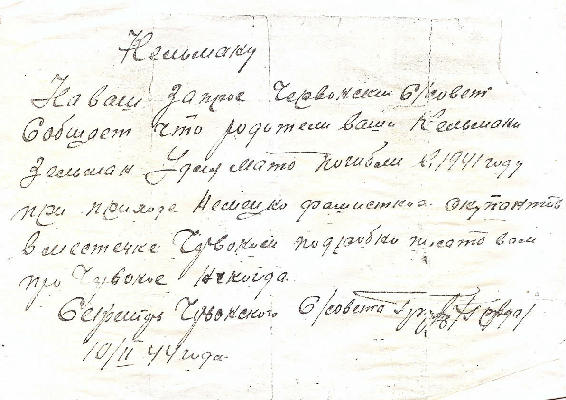 Кельману
На ваш запрос Червонский С/совет
Собщает что родители ваши Кельмани
Зельман Удля мато погибли в 1941 году
при приходе Немецко фашистких окупантов
в местечке Чувоном подробно писато вам
про Чувоное Некогда.
Секритдь Чувонского С/совета
10/II 44 года.